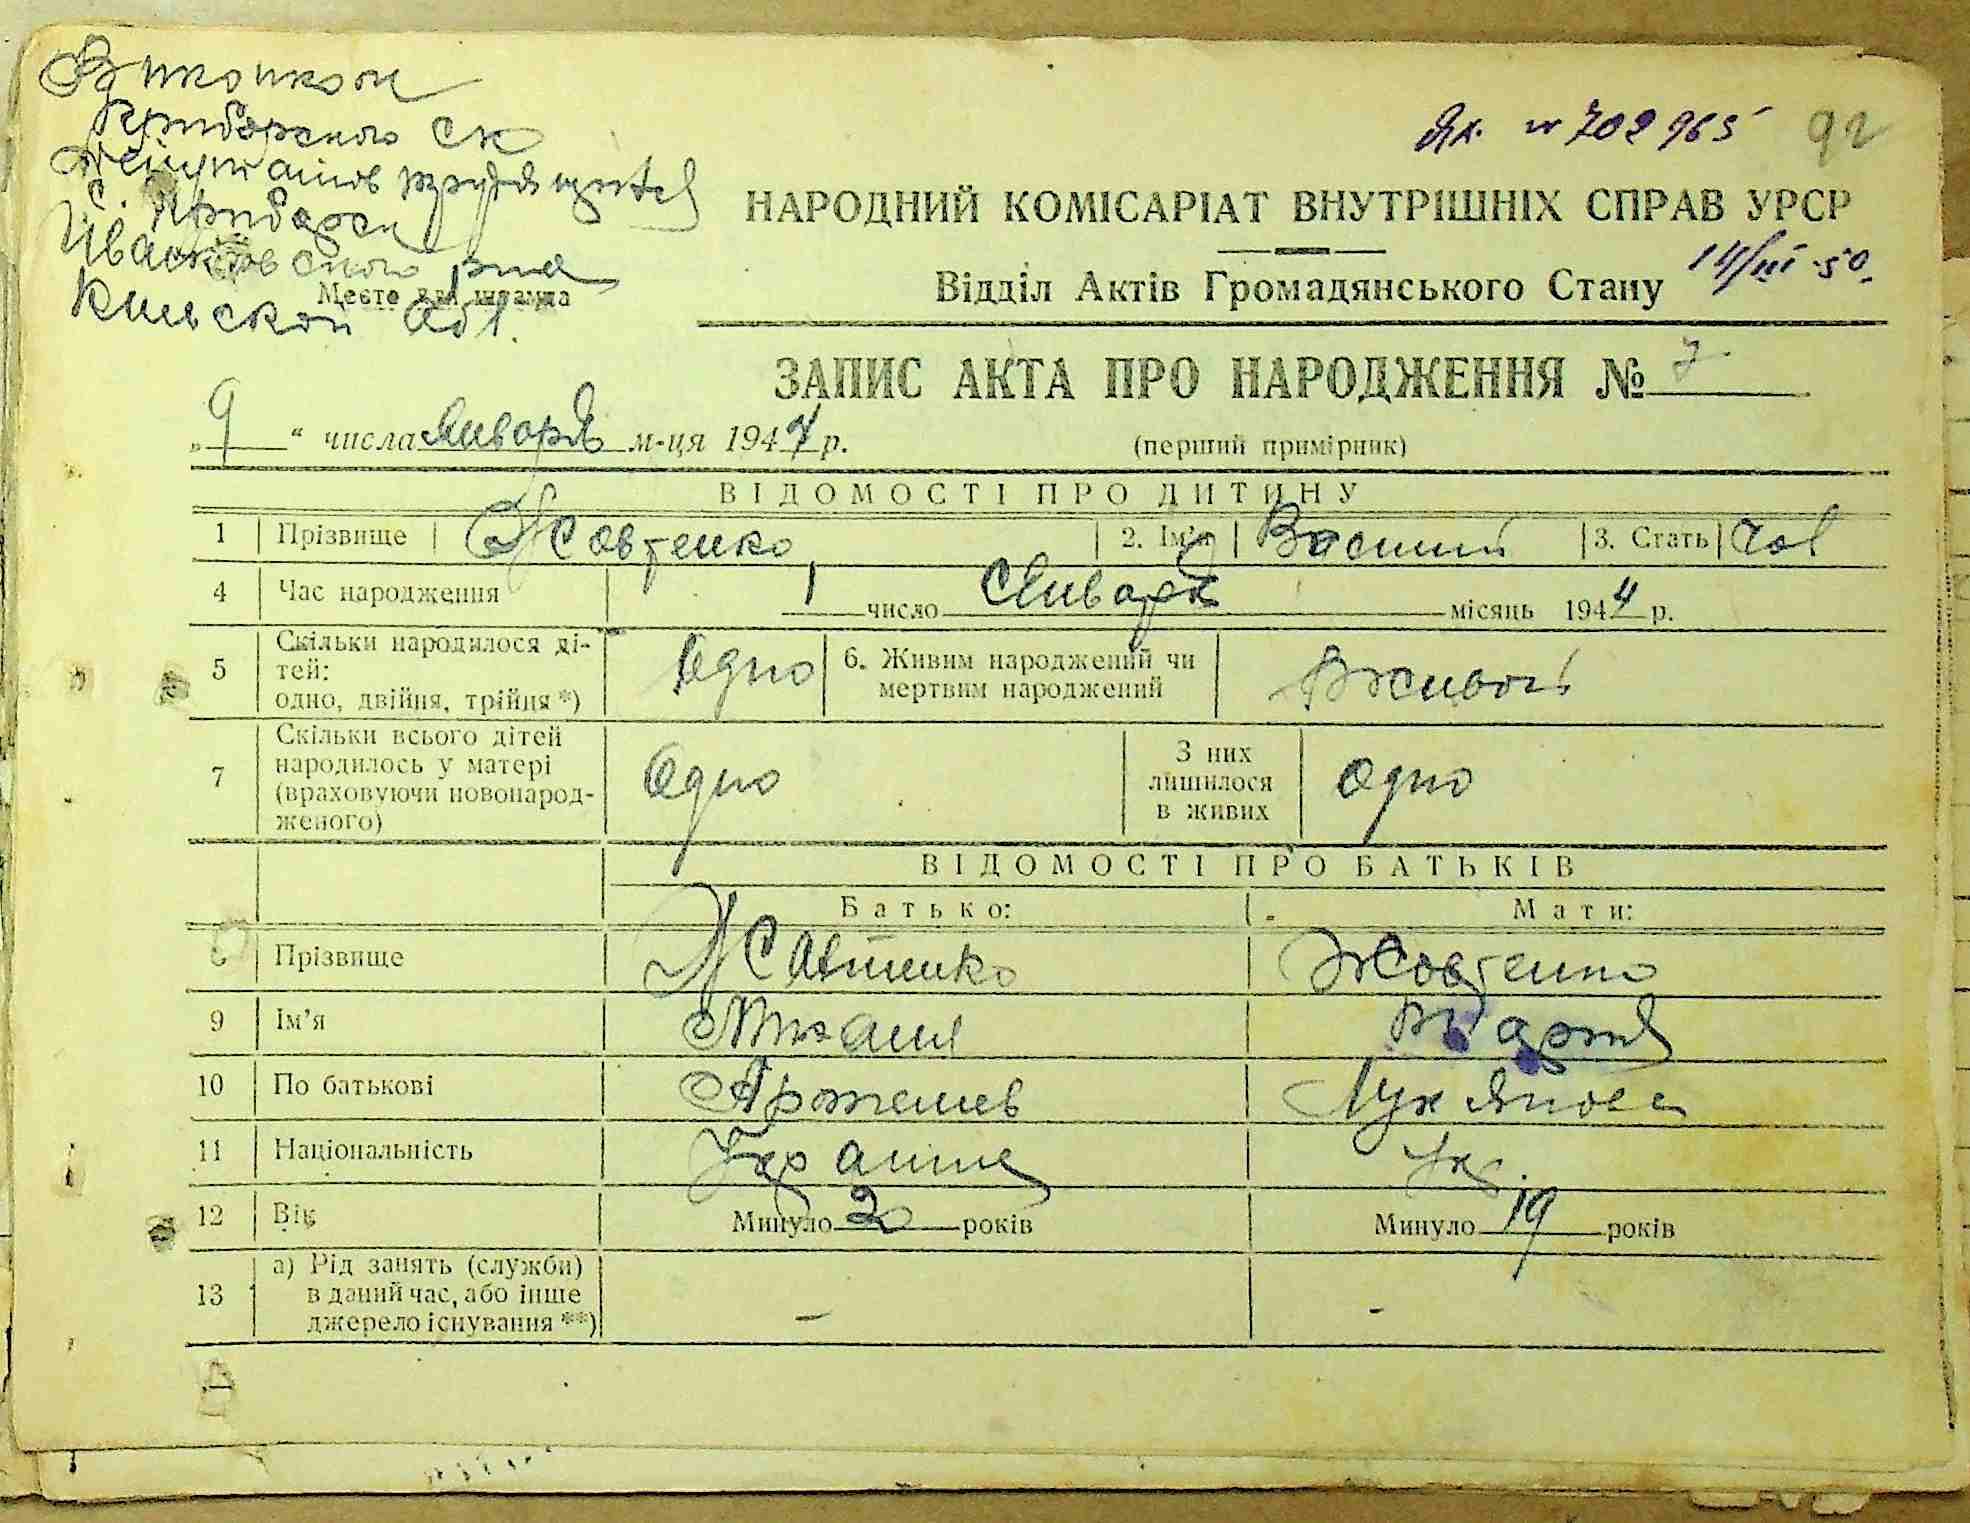 Виконком
Прибарского СК
депутатов трудящихся
с. Прибарск
Иванковского р-на
Киевской обл.
Место для штампа
Як. № 702965 92
НАРОДНИЙ КОМІСАРІАТ ВНУТРІШНІХ СПРАВ УРСР
Відділ Актів Громадянського Стану 14/III-50.
ЗАПИС АКТА ПРО НАРОДЖЕННЯ № 7
„9“ числа Января м-ця 1947 р. (перший примірник)
ВІДОМОСТІ ПРО ДИТИНУ
1 Прізвище Жовтенко 2. Ім'я Василий 3. Стать Чол
4 Час народження 1 число Января місяць 1944 р.
5 Скільки народилося ді-
тей:
одно, двійня, трійня *) Одно 6. Живим народжений чи
мертвим народжений Живой
7 Скільки всього дітей
народилось у матері
(враховуючи новонарод-
женого) Одно З них
лишилося
в живих Одно
ВІДОМОСТІ ПРО БАТЬКІВ
Батько: Мати:
Прізвище Жовтенко Жовтенко
9 Ім'я Михаил Мария
10 По батькові Артемев Лукянова
11 Національність Украинец Ук.
12 Вік Минуло 20 років Минуло 19 років
13 а) Рід занять (служби)
в даний час, або інше
джерело існування **) – -